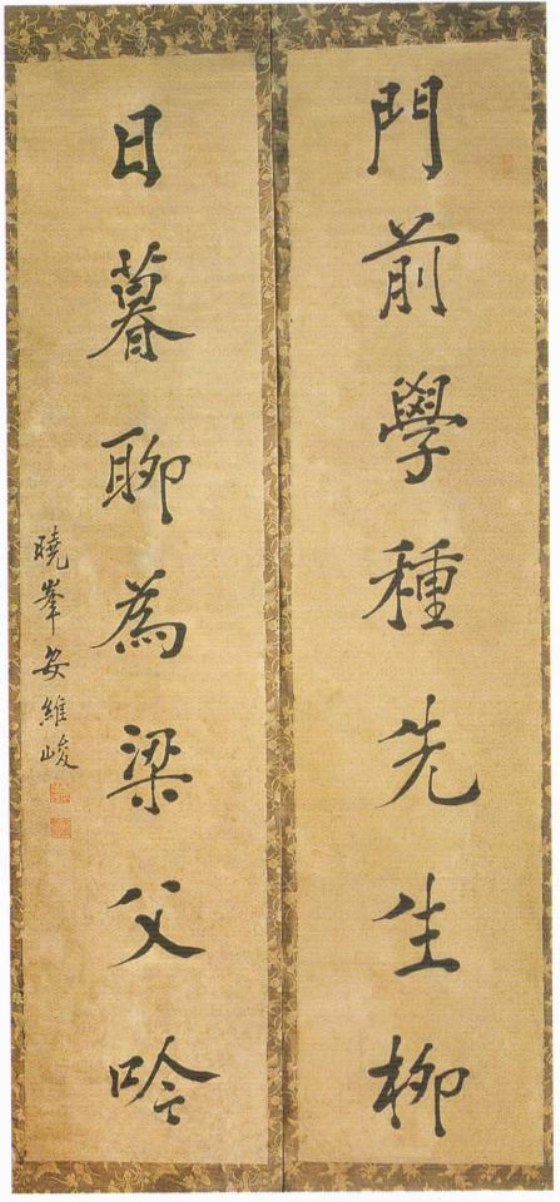 門前學種先生柳
日暮聊為梁父吟
曉峯安維峻